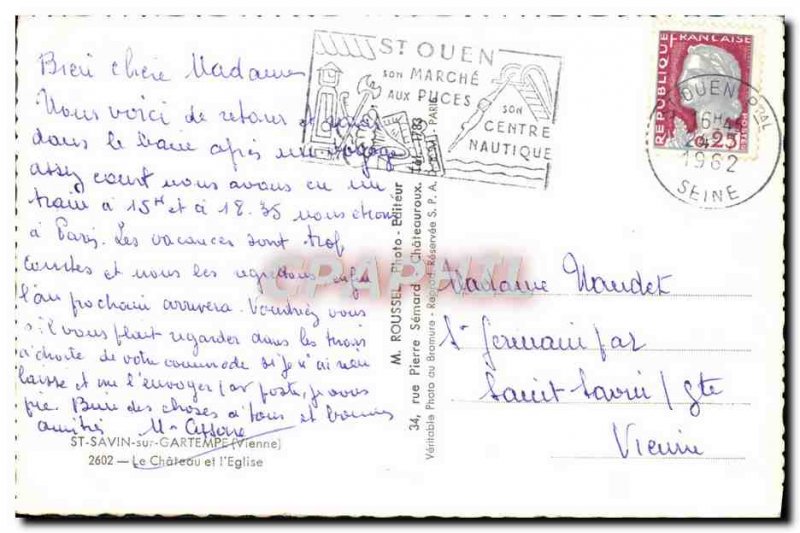 Bien chère Madame
Nous voici de retour et
dans le bain après un voyage
assez court nous avons eu un
train à 15H et à 18.35 nous étions
à Paris. Les vacances sont trop
courtes et nous les regrettons enfin
l'an prochain arrivera. Voudriez vous
s'il vous plait regarder dans les tiroirs
à droite de votre commode si je n'ai rien
laissé et me l'envoyer par poste, je vous
prie. Bien des choses à tous et bonnes
amitiés
ST-SAVIN-sur-GARTEMPE (Vienne)
2602 — Le Château et l'Eglise
ST OUEN
SON MARCHÉ
AUX PUCES
SON
CENTRE
NAUTIQUE
M. ROUSSEL, Photo - Editeur
34, rue Pierre Sémard - Châteauroux.
Véritable Photo au Bromure - Reprod. Réservée S. P. A. PARIS
CPAPHIL
REPUBLIQUE FRANÇAISE
0,25
OUEN PPAL
16H
1962
SEINE
Madame Naudet
St Germain par
Saint Savin / Gte
Vienne